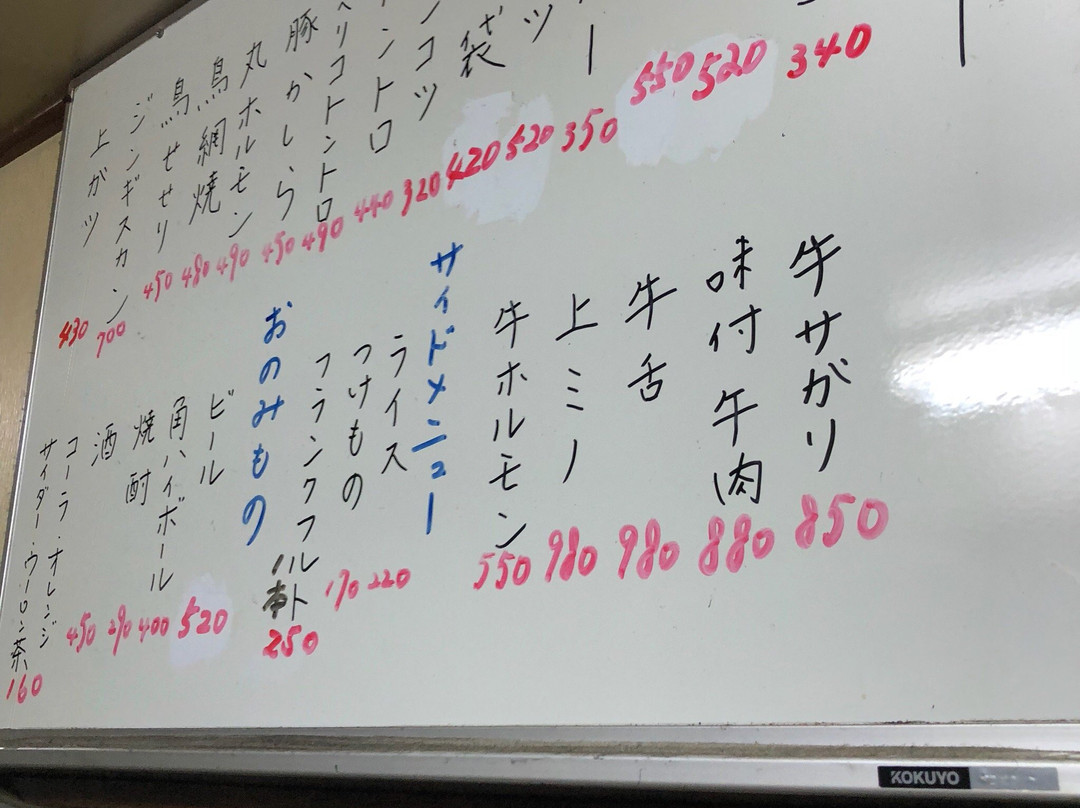 340
520
550
350
520
袋 420
コツ 320
ントロ 440
リコトントロ 490
豚かしら 450
丸ホルモン 490
鳥網焼 480
鳥せせり 450
ジンギスカン 700
上がツ 430
牛サがリ 850
味付午肉 880
牛舌 980
上ミノ 980
牛ホルモン 550
サイドメニュー
ライス 220
つけもの 170
フランクフルト 1本 250
おのみもの
ビール 520
角ハイボール 400
焼酎 290
酒 450
コーラ・オレンジ
サイダー・ウーロン茶 160
KOKUYO